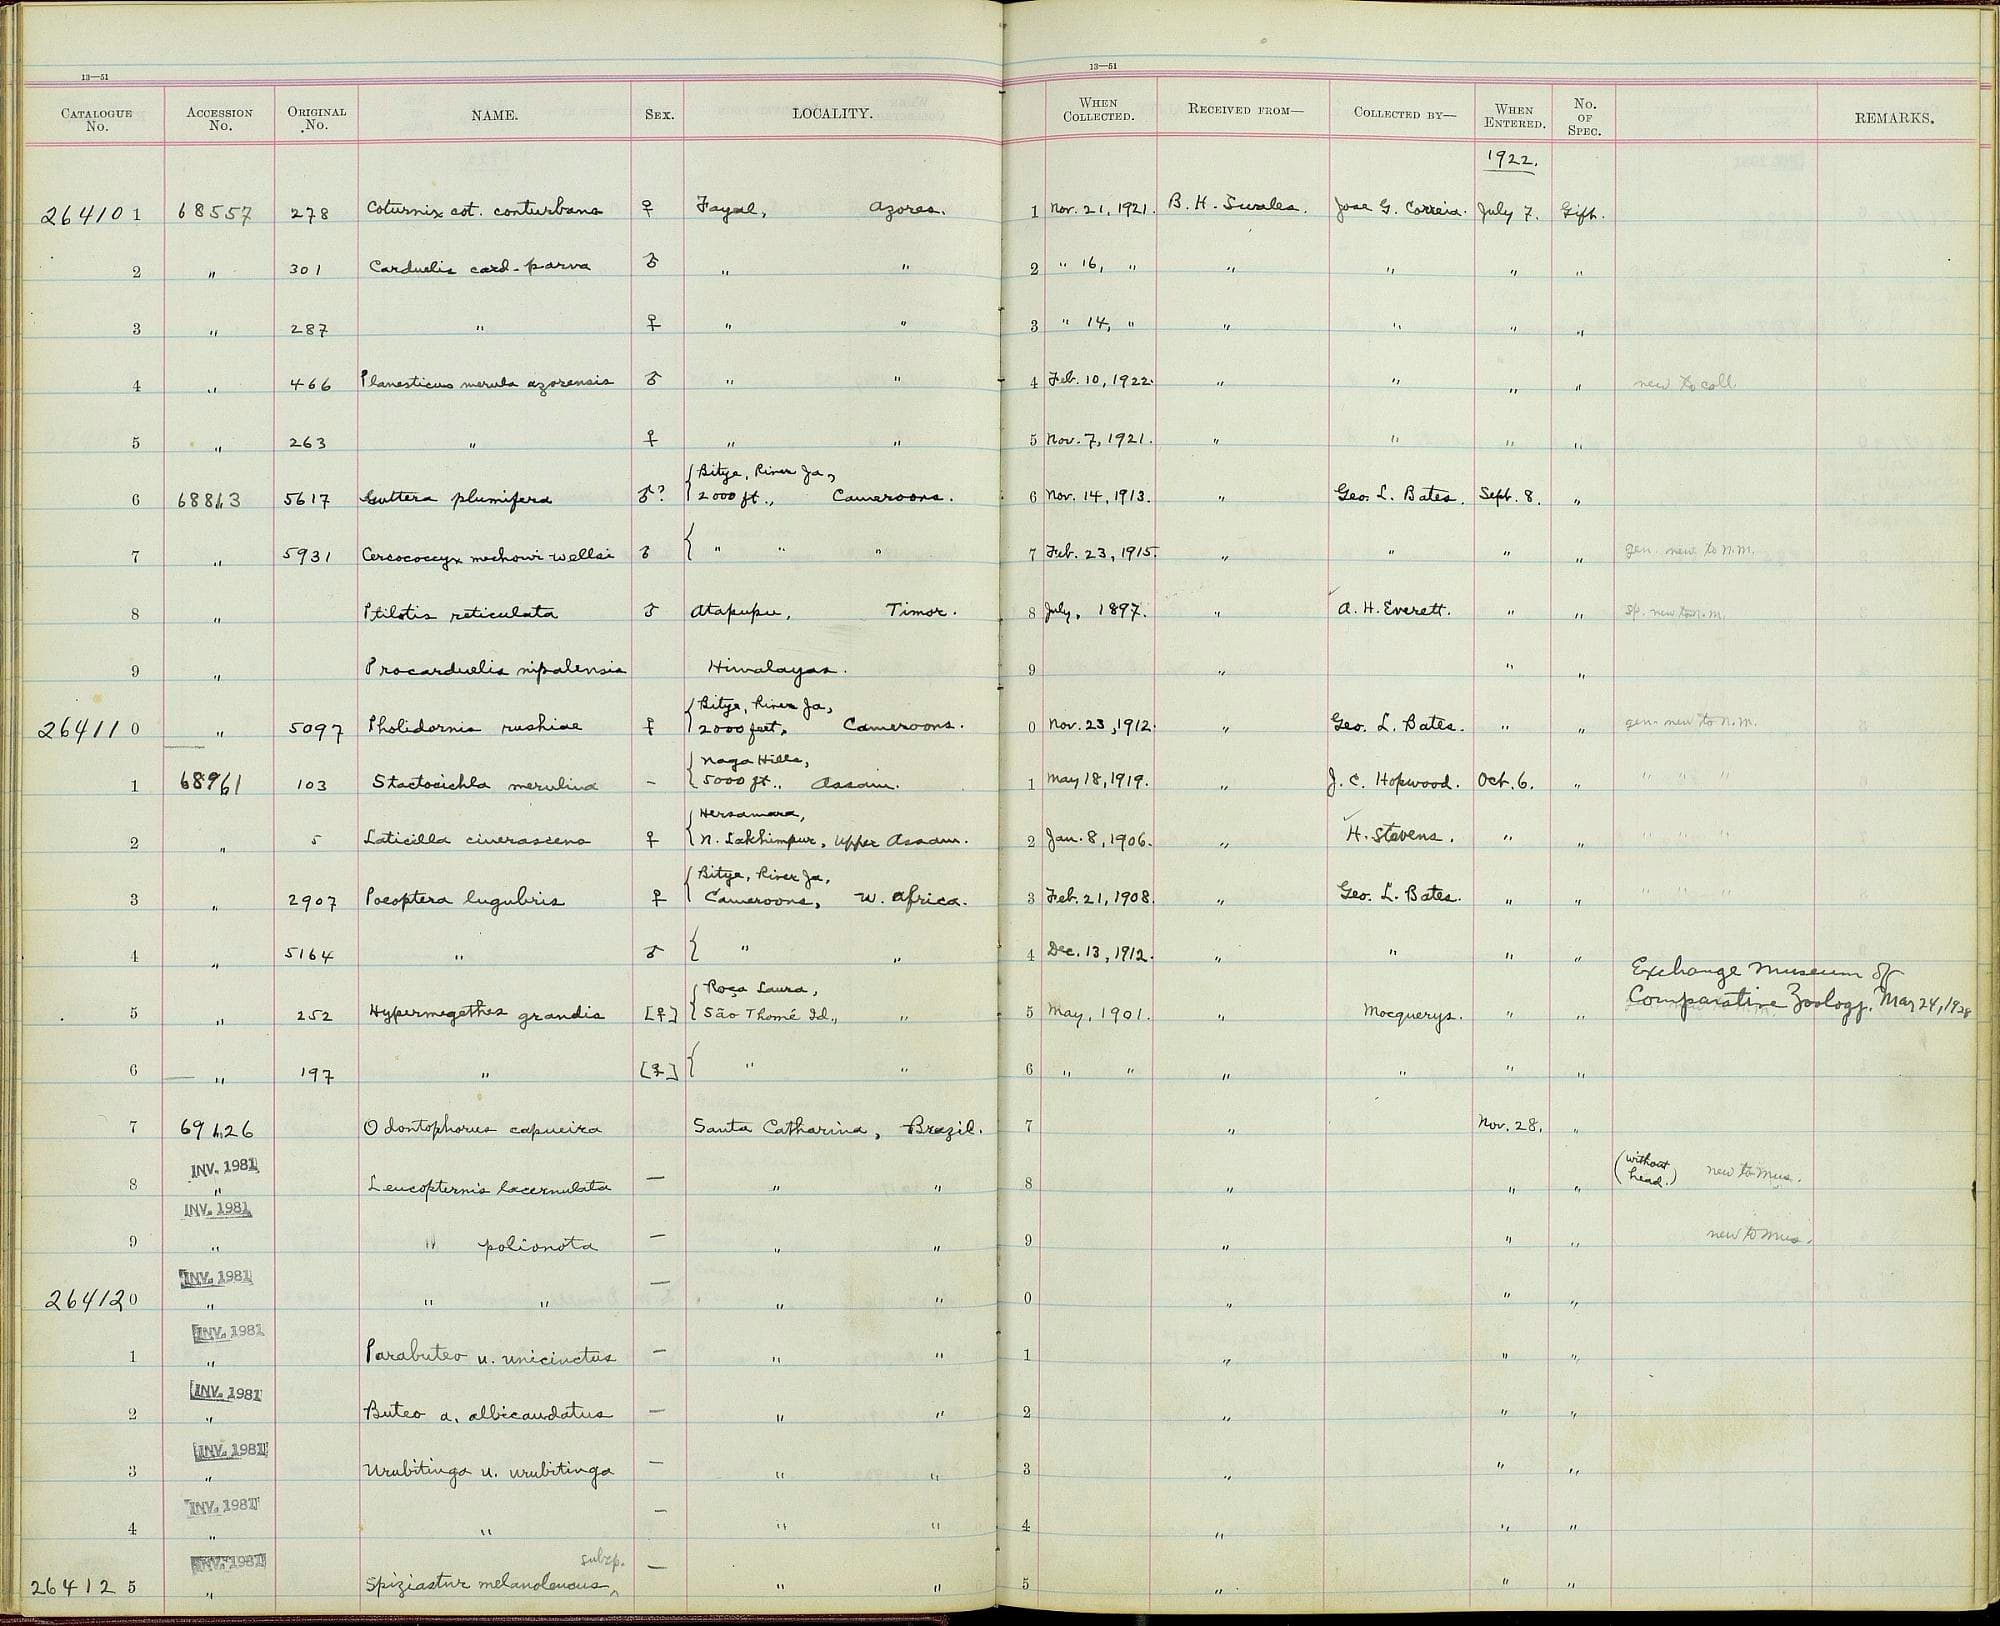 13—51
CATALOGUE No. ACCESSION No. ORIGINAL No. NAME. SEX. LOCALITY.
13—51
WHEN COLLECTED. RECEIVED FROM— COLLECTED BY— WHEN ENTERED. No. OF SPEC. REMARKS.
1922.
264101 68557 278 Coturnix cot. conturbans ♀ Fayal, Azores. 1 Nov. 21, 1921. B. H. Swales. Jose G. Correia. July 7. Gift.
2 " 301 Carduelis card. parva ♂ " " 2 " 16, " " " " "
3 " 287 " ♀ " " 3 " 14, " " " " "
4 " 466 Planesticus merula azorensis ♂ " " 4 Feb. 10, 1922. " " " " new to coll.
5 " 263 " ♀ " " 5 Nov. 7, 1921. " " " "
6 68813 5617 Guttera plumifera ♂? { Bitye, River Ja, 2000 ft., Cameroons. 6 Nov. 14, 1913. " Geo. L. Bates. Sept. 8. "
7 " 5931 Cercococcyx mechowi wellsi ♂ { " " " 7 Feb. 23, 1915. " " " " gen. new to N.M.
8 " Ptilotis reticulata ♂ Atapupu, Timor. 8 July, 1897. " A. H. Everett. " " sp. new to N.M.
9 " Procarduelis nipalensis Himalayas. 9 " " "
264110 " 5097 Pholidornis rushiae ♀ { Bitye, River Ja, 2000 feet, Cameroons. 0 Nov. 23, 1912. " Geo. L. Bates. " " gen. new to N.M.
1 68961 103 Stactocichla merulina – { Naga Hills, 5000 ft., Assam. 1 May 18, 1919. " J. C. Hopwood. Oct. 6. " " " "
2 " 5 Laticilla cinerascens ♀ { Hersamara, N. Lakhimpur, Upper Assam. 2 Jan. 8, 1906. " H. Stevens. " " " " "
3 " 2907 Poeoptera lugubris ♀ { Bitye, River Ja, Cameroons, W. Africa. 3 Feb. 21, 1908. " Geo. L. Bates. " " " " "
4 " 5164 " ♂ { " " 4 Dec. 13, 1912. " " " "
5 " 252 Hypermegethes grandis [♀] { Roça Laura, São Thomé Id., " 5 May, 1901. " Mocquerys. " " Exchange Museum of Comparative Zoology. Mar 24, 1928
6 " 197 " [♀] { " " 6 " " " " " "
7 69126 Odontophorus capueira Santa Catharina, Brazil. 7 " Nov. 28. "
INV. 1981
8 " Leucopternis lacernulata — " " 8 " " " (without head.) new to Mus.
INV. 1981
9 " " polionota — " " 9 " " " new to Mus.
INV. 1981
264120 " " " — " " 0 " " "
INV. 1981
1 " Parabuteo u. unicinctus — " " 1 " " "
INV. 1981
2 " Buteo a. albicaudatus — " " 2 " " "
INV. 1981
3 " Urubitinga u. urubitinga — " " 3 " " "
INV. 1981
4 " " — " " 4 " " "
INV. 1981 subsp.
264125 " Spiziastur melanoleucus ^ — " " 5 " " "